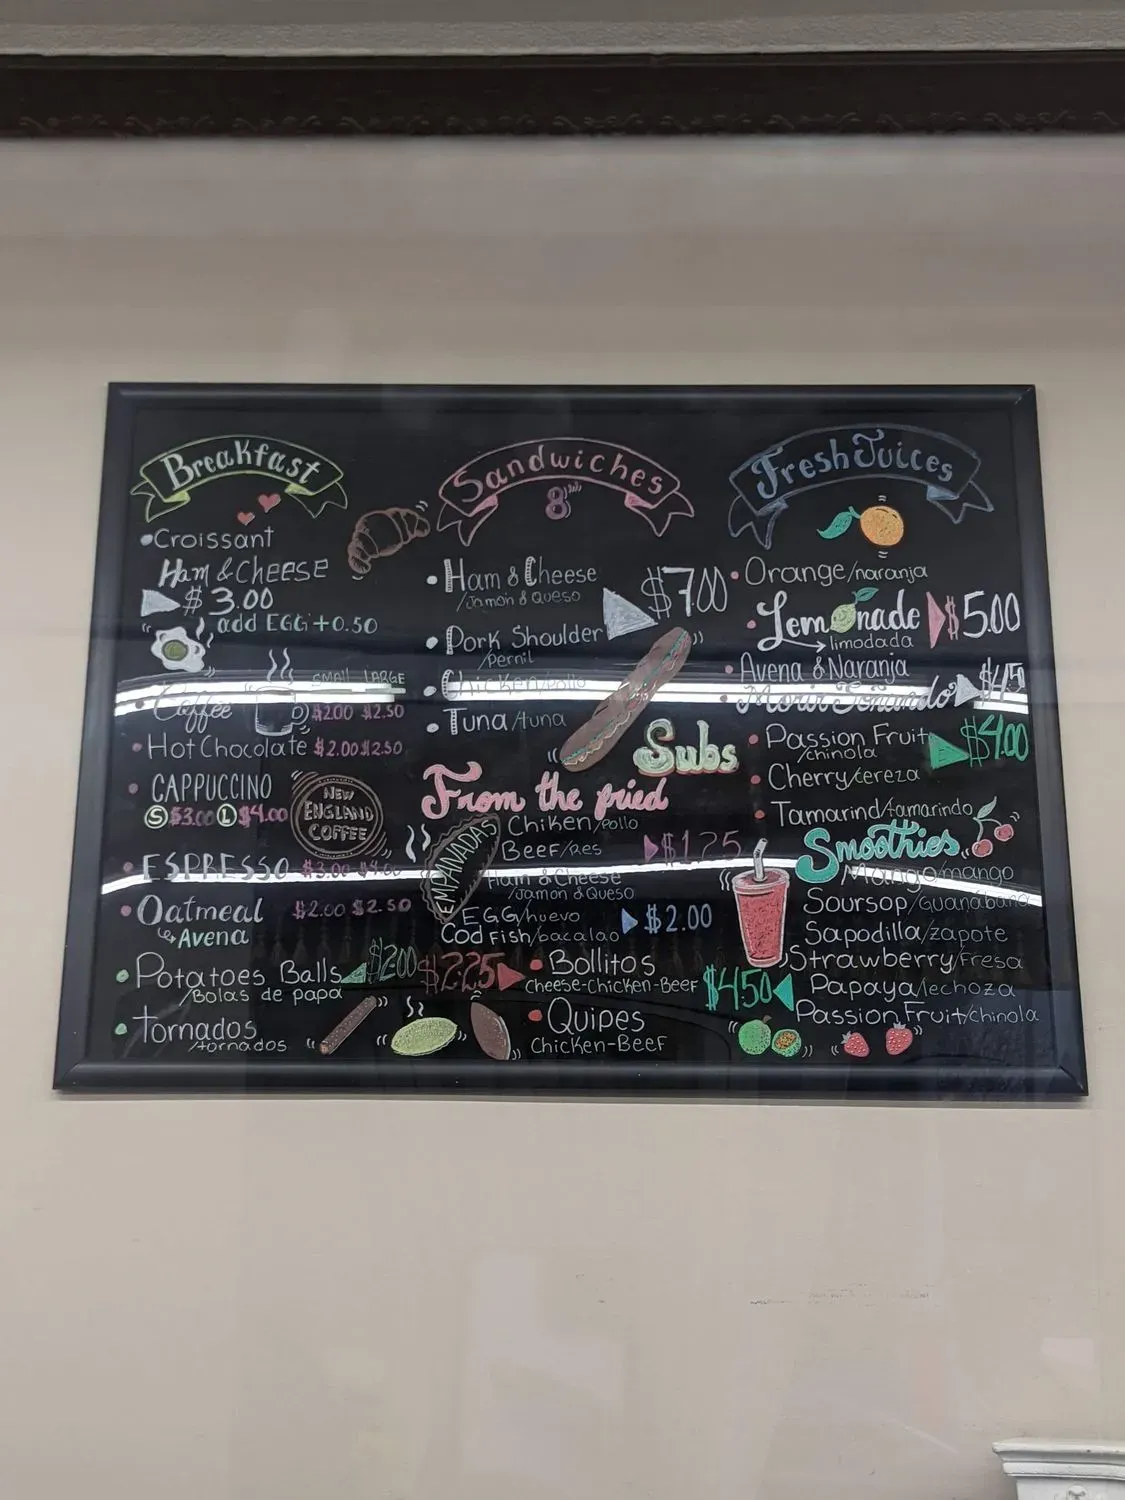 Breakfast
Croissant
Ham & Cheese
$3.00
add EGG +0.50
SMALL LARGE
Coffee $2.00 $2.50
Hot Chocolate $2.00 $2.50
CAPPUCCINO
S $3.00 L $4.00
NEW
ENGLAND
COFFEE
ESPRESSO $3.00 $4.00
Oatmeal $2.00 $2.50
Avena
Potatoes Balls $2.00
/Bolas de papa
Tornados
/tornados
Sandwiches
8"
Ham & Cheese $7.00
/Jamon & Queso
Pork Shoulder
/Pernil
Chicken/pollo
Tuna/tuna
Subs
From the fried
EMPANADAS
Chiken/Pollo
Beef/Res $1.25
Ham & Cheese
/Jamon & Queso
EGG/huevo $2.00
Cod Fish/bacalao
$2.25 Bollitos
Cheese-Chicken-Beef
Quipes
Chicken-Beef
Fresh Juices
Orange/naranja
Lemonade $5.00
limodada
Avena & Naranja
Morir Soñando
Passion Fruit $4.00
/chinola
Cherry/cereza
Tamarind/tamarindo
Smoothies
Mango/mango
Soursop/guanabana
Sapodilla/zapote
Strawberry/Fresa
$4.50 Papaya/lechoza
Passion Fruit/chinola